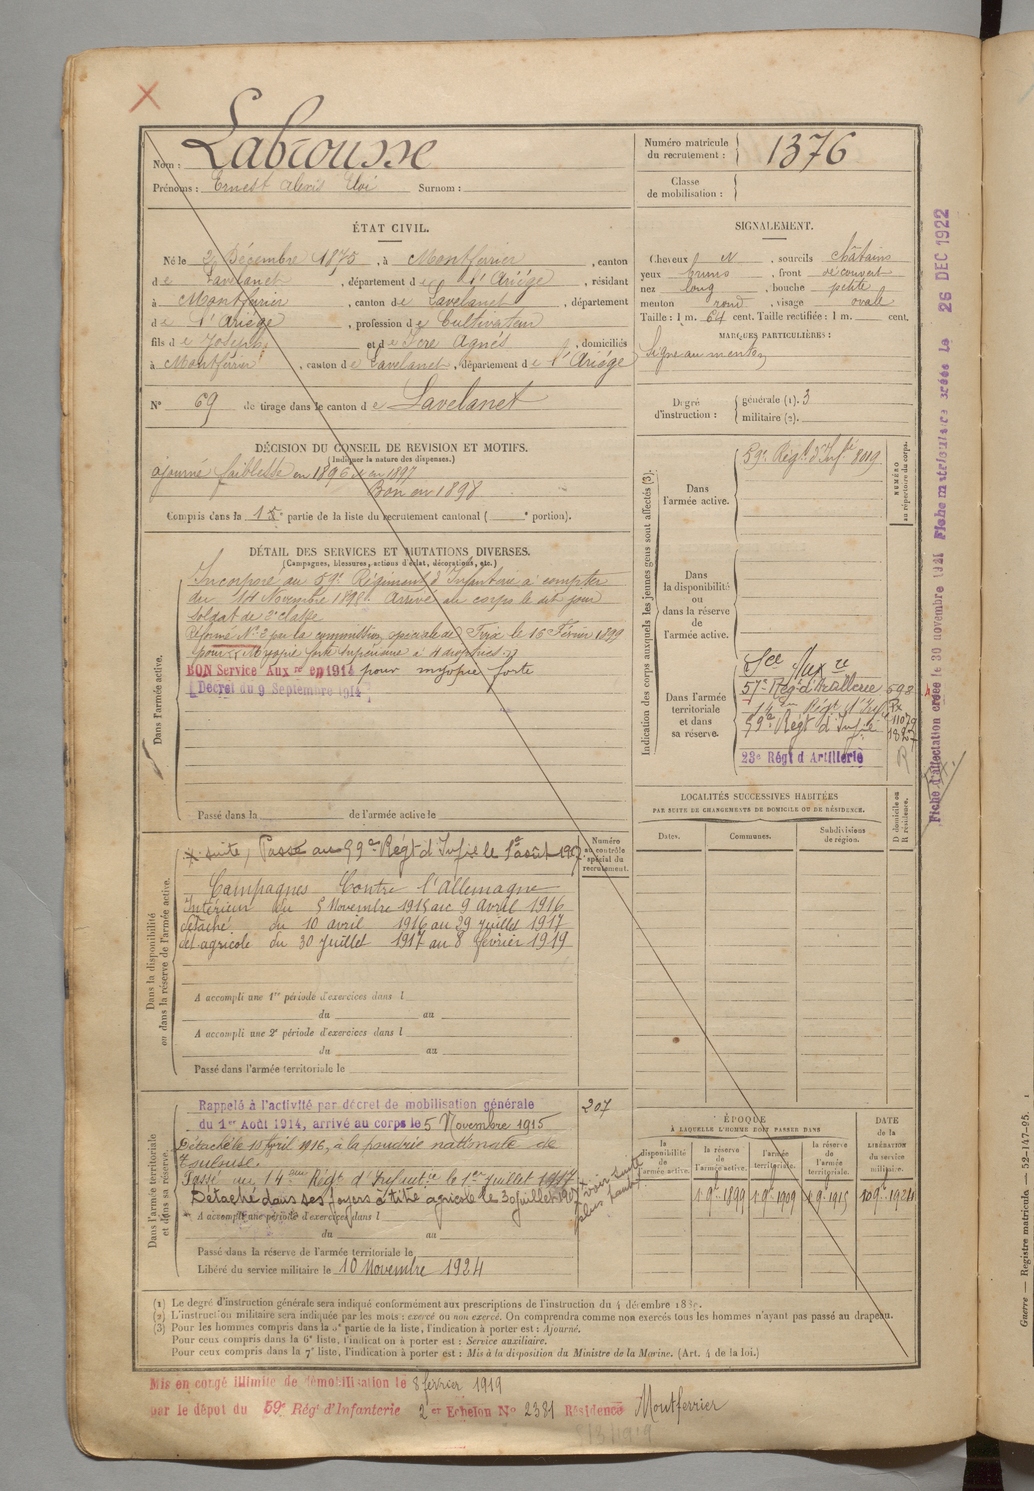 Nom : Labrousse
Prénoms : Ernest Alexis Eloi Surnom :
Numéro matricule du recrutement : 1376
Classe de mobilisation :
ÉTAT CIVIL.
Né le 2 Décembre 1875, à Montferrier, canton
de Lavelanet, département de l'Ariége, résidant
à Montferrier, canton de Lavelanet, département
de l'Ariége, profession de Cultivateur
fils de Joseph et de Fore Agnés, domiciliés
à Montferrier, canton de Lavelanet, département de l'Ariége
N° 69 de tirage dans le canton de Lavelanet
SIGNALEMENT.
Cheveux N, sourcils châtains
yeux bruns, front découvert
nez long, bouche petite
menton rond, visage ovale
Taille : 1 m. 64 cent. Taille rectifiée : 1 m. cent.
MARQUES PARTICULIÈRES :
Signe au menton
Degré d'instruction : générale (1). 3
militaire (2).
DÉCISION DU CONSEIL DE REVISION ET MOTIFS.
(Indiquer la nature des dispenses.)
ajourné faiblesse en 1896 et en 1897
Bon en 1898
Compris dans la 1re partie de la liste du recrutement cantonal ( e portion).
DÉTAIL DES SERVICES ET MUTATIONS DIVERSES.
(Campagnes, blessures, actions d'éclat, décorations, etc.)
Dans l'armée active.
Incorporé au 59e Régiment d'Infanterie à compter
du 14 Novembre 1898. Arrivé au corps le dit jour
soldat de 2e classe
Réformé N° 2 par la commission spéciale de Foix le 16 Février 1899
pour Myopie forte supérieure à 4 dioptries
BON Service Auxre en 1914 pour myopie forte
Décret du 9 Septembre 1914
Passé dans la de l'armée active le
Indication des corps auxquels les jeunes gens sont affectés (3).
NUMÉRO au répertoire du corps.
Dans l'armée active.
59e Régt d'Infie 8019
Dans la disponibilité ou dans la réserve de l'armée active.
Dans l'armée territoriale et dans sa réserve.
Sce Auxre
57e Régt d'Artillerie 598
14e Régt d'Inf 11079
59e Régt d'Infie 1827
23e Régt d'Artillerie R
LOCALITÉS SUCCESSIVES HABITÉES
PAR SUITE DE CHANGEMENTS DE DOMICILE OU DE RÉSIDENCE.
Dates. Communes. Subdivisions de région. D domicile ou R résidence.
Dans la disponibilité ou dans la réserve de l'armée active.
Numéro au contrôle spécial du recrutement.
x suite, Passé au 59e Régt d'Infie le 1er août 1917
Campagnes Contre l'Allemagne
Intérieur du 5 Novembre 1915 au 9 Avril 1916
détaché du 10 avril 1916 au 29 juillet 1917
det agricole du 30 juillet 1917 au 8 février 1919
A accompli une 1re période d'exercices dans l
du au
A accompli une 2e période d'exercices dans l
du au
Passé dans l'armée territoriale le
Dans l'armée territoriale et dans sa réserve.
Rappelé à l'activité par décret de mobilisation générale
du 1er Août 1914, arrivé au corps le 5 Novembre 1915
207
Détaché le 10 Avril 1916, à la poudrie nationale de
Toulouse.
Passé au 14eme Régt d'Infantie le 1er juillet 1917
Détaché dans ses foyers à titre agricole le 30 juillet 1917
x voir suite plus haut
A accompli une période d'exercices dans l
du au
Passé dans la réserve de l'armée territoriale le
Libéré du service militaire le 10 Novembre 1924
ÉPOQUE
À LAQUELLE L'HOMME DOIT PASSER DANS
la disponibilité de l'armée active. la réserve de l'armée active. l'armée territoriale. la réserve de l'armée territoriale. DATE de la LIBÉRATION du service militaire.
1 9bre 1899 1 9bre 1909 1 9bre 1915 10 9bre 1924
(1) Le degré d'instruction générale sera indiqué conformément aux prescriptions de l'instruction du 4 décembre 18
(2) L'instruction militaire sera indiquée par les mots : exercé ou non exercé. On comprendra comme non exercés tous les hommes n'ayant pas passé au drapeau.
(3) Pour les hommes compris dans la 5e partie de la liste, l'indication à porter est : Ajourné.
Pour ceux compris dans la 6e liste, l'indication à porter est : Service auxiliaire.
Pour ceux compris dans la 7e liste, l'indication à porter est : Mis à la disposition du Ministre de la Marine. (Art. 4 de la loi.)
Mis en congé illimité de démobilisation le 8 février 1919
par le dépôt du 59e Rég. d'Infanterie 2er Echelon N° 2381 Résidence Montferrier
Fiche matriculaire créée le 26 DEC 1922
Guerre — Registre matricule. — 52-147-95.